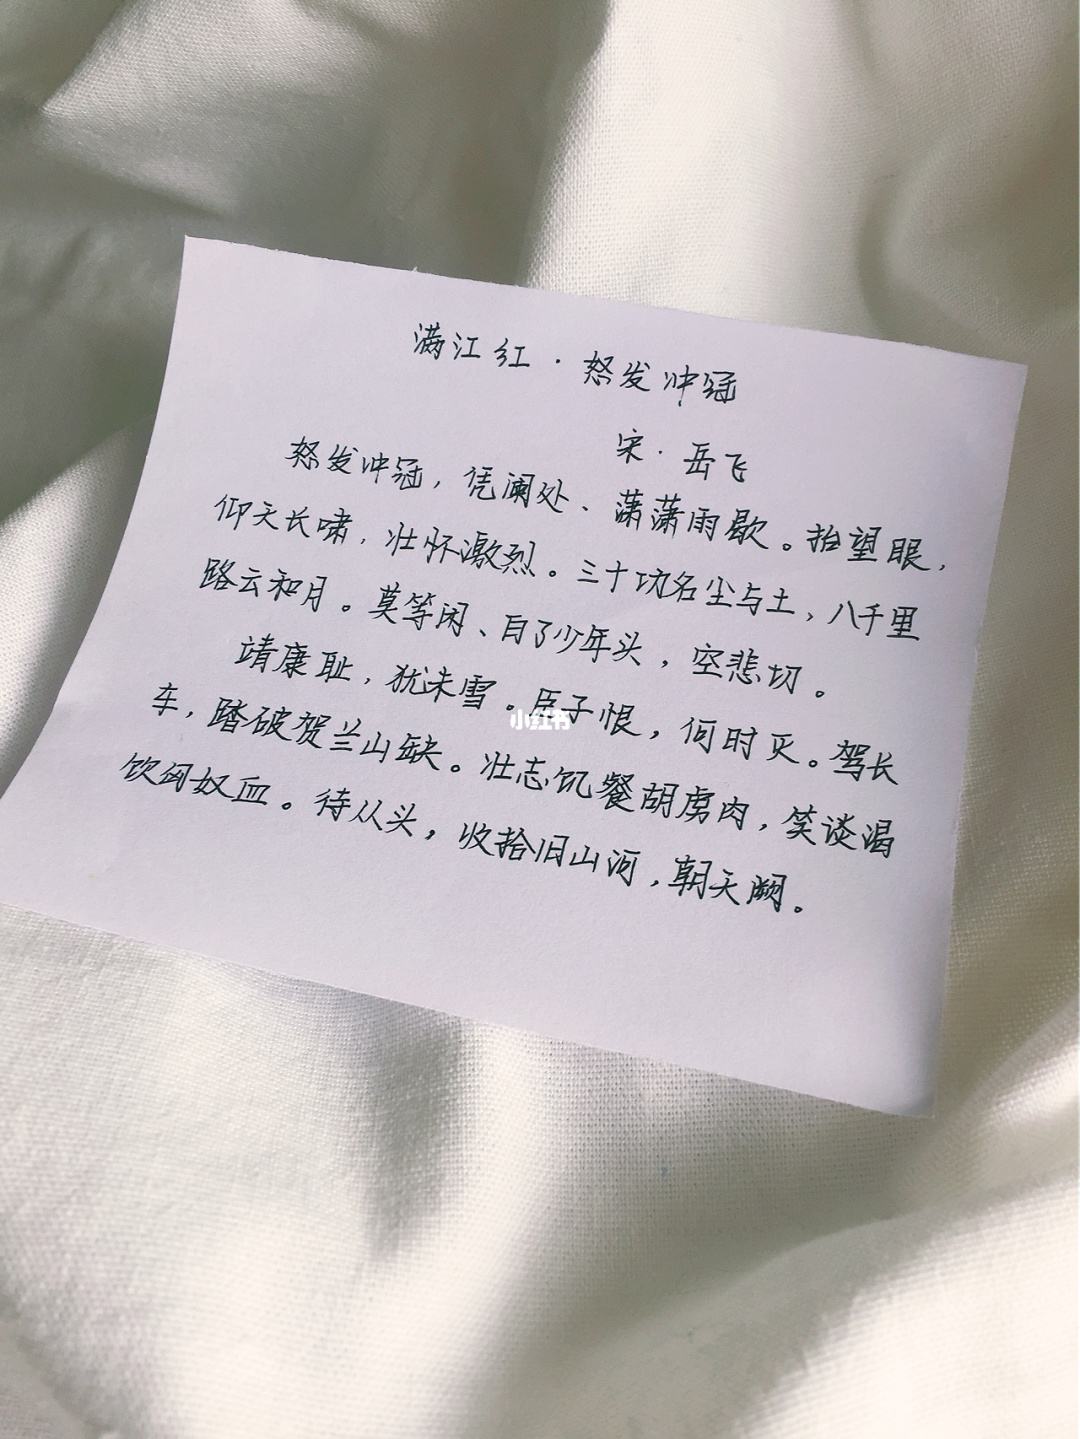 满江红·怒发冲冠
宋·岳飞
怒发冲冠，凭阑处、潇潇雨歇。抬望眼，
仰天长啸，壮怀激烈。三十功名尘与土，八千里
路云和月。莫等闲、白了少年头，空悲切。
靖康耻，犹未雪。臣子恨，何时灭。驾长
车，踏破贺兰山缺。壮志饥餐胡虏肉，笑谈渴
饮匈奴血。待从头，收拾旧山河，朝天阙。
小红书